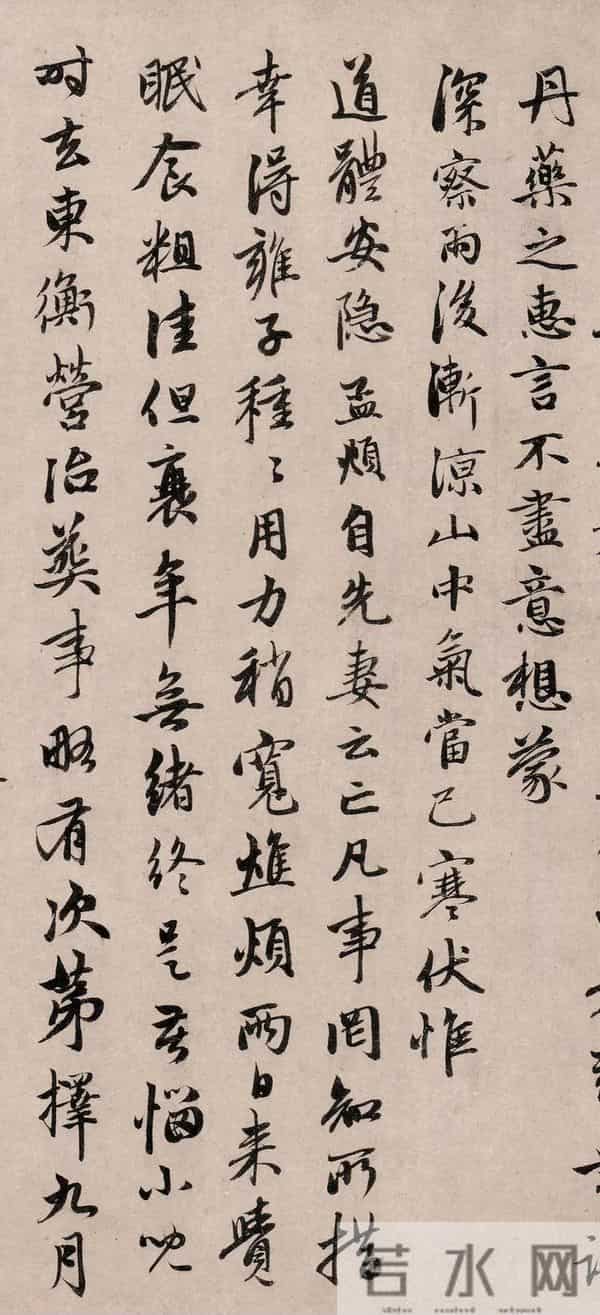 丹藥之惠言不盡意想蒙
深察雨後漸涼山中氣當已寒伏惟
道體安隱孟頫自先妻云亡凡事罔知所措
幸得雍子種〻用力稍寬憔煩兩日來覺
眠食粗佳但衰年無緒終是苦惱小兒
时去東衡營治葬事略有次第擇九月
若水网